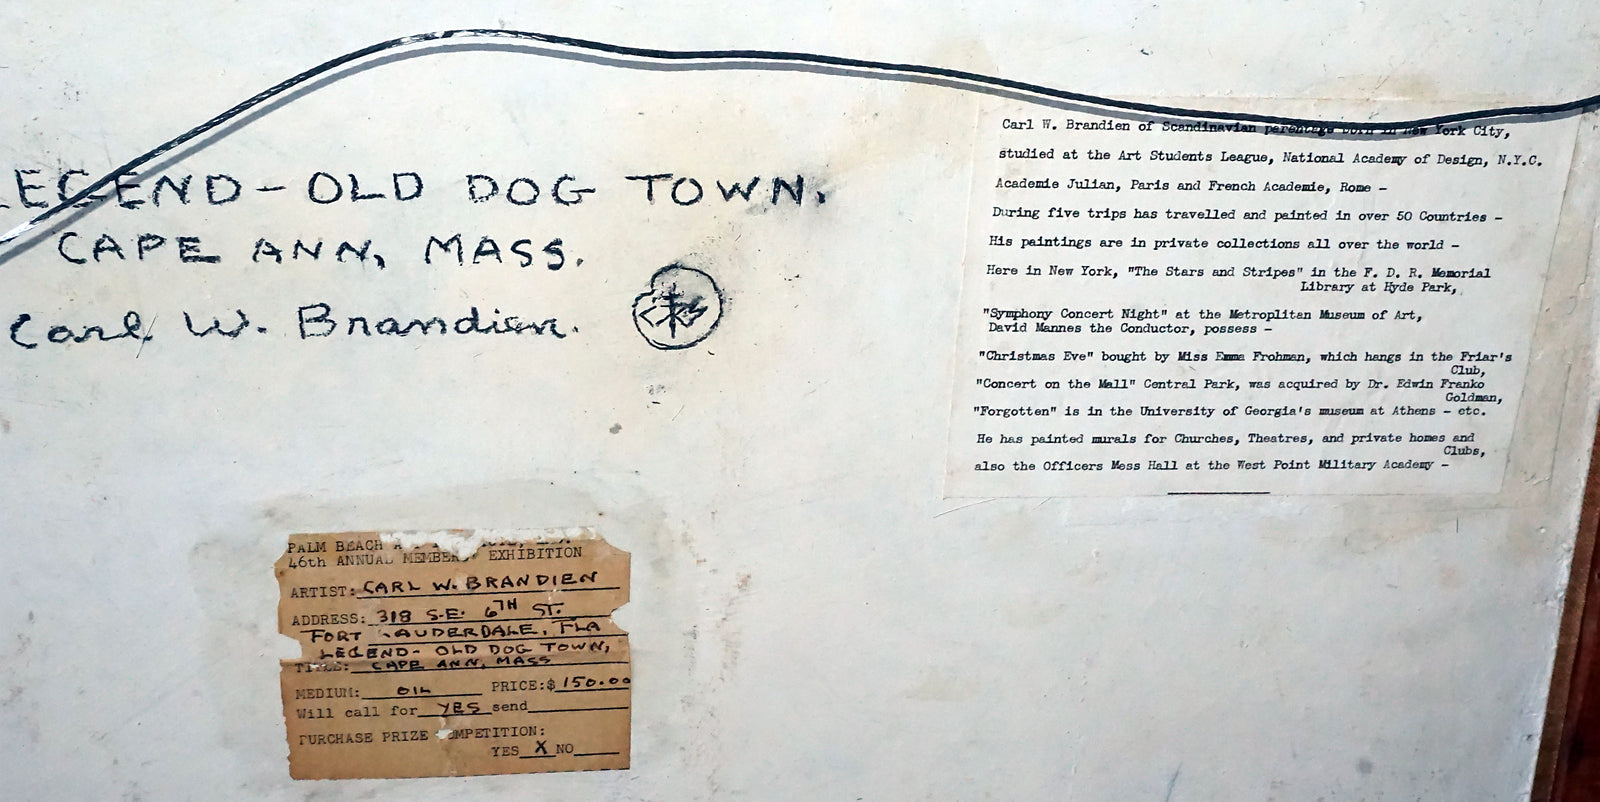 LEGEND - OLD DOG TOWN.
CAPE ANN, MASS.
Carl W. Brandien.
Carl W. Brandien of Scandinavian parentage born in New York City,
studied at the Art Students League, National Academy of Design, N.Y.C.
Academie Julian, Paris and French Academie, Rome -
During five trips has travelled and painted in over 50 Countries -
His paintings are in private collections all over the world -
Here in New York, "The Stars and Stripes" in the F. D. R. Memorial
Library at Hyde Park,
"Symphony Concert Night" at the Metroplitan Museum of Art,
David Mannes the Conductor, possess -
"Christmas Eve" bought by Miss Emma Frohman, which hangs in the Friar's
Club,
"Concert on the Mall" Central Park, was acquired by Dr. Edwin Franko
Goldman,
"Forgotten" is in the University of Georgia's museum at Athens - etc.
He has painted murals for Churches, Theatres, and private homes and
Clubs,
also the Officers Mess Hall at the West Point Military Academy -
PALM BEACH
46th ANNUAL MEMBERS' EXHIBITION
ARTIST: CARL W. BRANDIEN
ADDRESS: 318 S.E. 6TH ST.
FORT LAUDERDALE, FLA
LEGEND - OLD DOG TOWN,
TITLE: CAPE ANN, MASS
MEDIUM: OIL PRICE:$ 150.00
Will call for YES send
PURCHASE PRIZE COMPETITION:
YES X NO